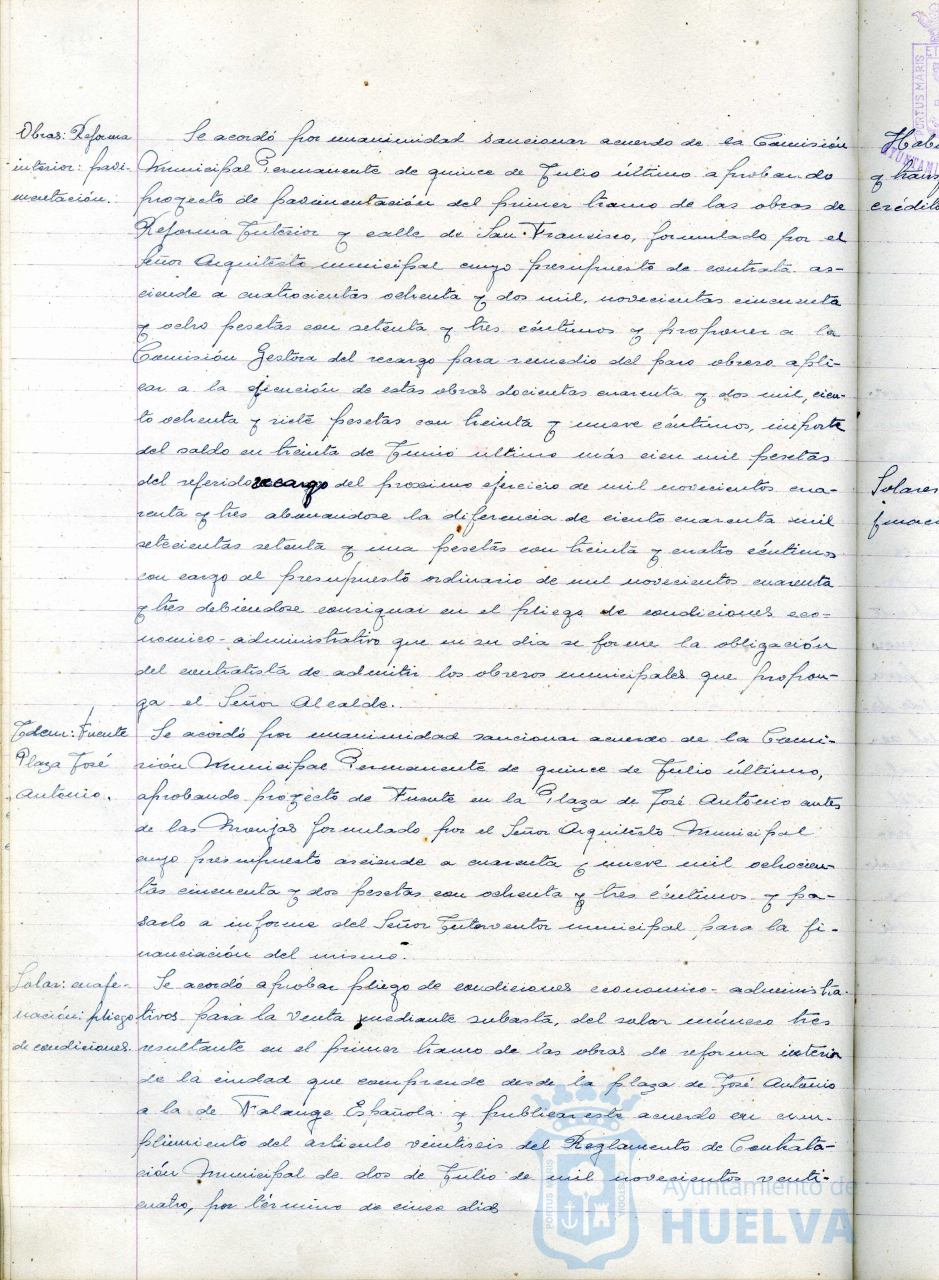 Obras: Reforma
interior: pavi-
mentación.
Se acordó por unanimidad sancionar acuerdo de la Comisión
Municipal Permanente de quince de Julio último aprobando
proyecto de pavimentación del primer tramo de las obras de
Reforma Interior y calle de San Francisco, formulado por el
Señor Arquitecto municipal cuyo presupuesto de contrata as-
ciende a cuatrocientas ochenta y dos mil, novecientas cincuenta
y ocho pesetas con setenta y tres céntimos y proponer a la
Comisión Gestora del recargo para remedio del paro obrero apli-
car a la ejecución de estas obras docientas cuarenta y dos mil, cien-
to ochenta y siete pesetas con treinta y nueve céntimos, importe
del saldo en treinta de Junio último más cien mil pesetas
del referido recargo del proximo ejercicio de mil novecientos cua-
renta y tres abonandose la diferencia de ciento cuarenta mil
setecientas setenta y una pesetas con treinta y cuatro céntimos
con cargo al presupuesto ordinario de mil novecientos cuarenta
y tres debiendose consignar en el pliego de condiciones eco-
nomico-administrativo que en su dia se forme la obligación
del contratista de admitir los obreros municipales que propon-
ga el Señor Alcalde.
Idem: Fuente
Plaza José
Antonio.
Se acordó por unanimidad sancionar acuerdo de la Comi-
sión Municipal Permanente de quince de Julio último,
aprobando proyecto de Fuente en la Plaza de José António antes
de las Monjas formulado por el Señor Arquitécto Municipal
cuyo presupuesto asciende a cuarenta y nueve mil ochocien-
tas cincuenta y dos pesetas con ochenta y tres céntimos y pa-
sarlo a informe del Señor Interventor municipal para la fi-
nanciación del mismo.
Solar: enage-
nación: pliego
de condiciones.
Se acordó aprobar pliego de condiciones economico-administra-
tivos para la venta mediante subasta, del solar número tres
resultante en el primer tramo de las obras de reforma interior
de la ciudad que comprende desde la plaza de José Antonio
a la de Falange Española y publicar este acuerdo en cum-
plimiento del artículo veintiseis del Reglamento de Contrata-
ción Municipal de dos de Julio de mil novecientos venti-
cuatro, por término de cinco dias
y trans
crédito
Solares
PORTUS MARIS
CUSTODIA
Ayuntamiento de
HUELVA